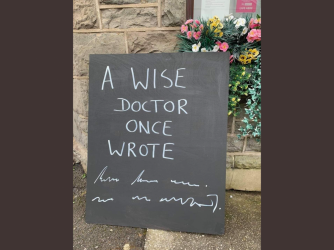 A WISE
DOCTOR
ONCE
WROTE